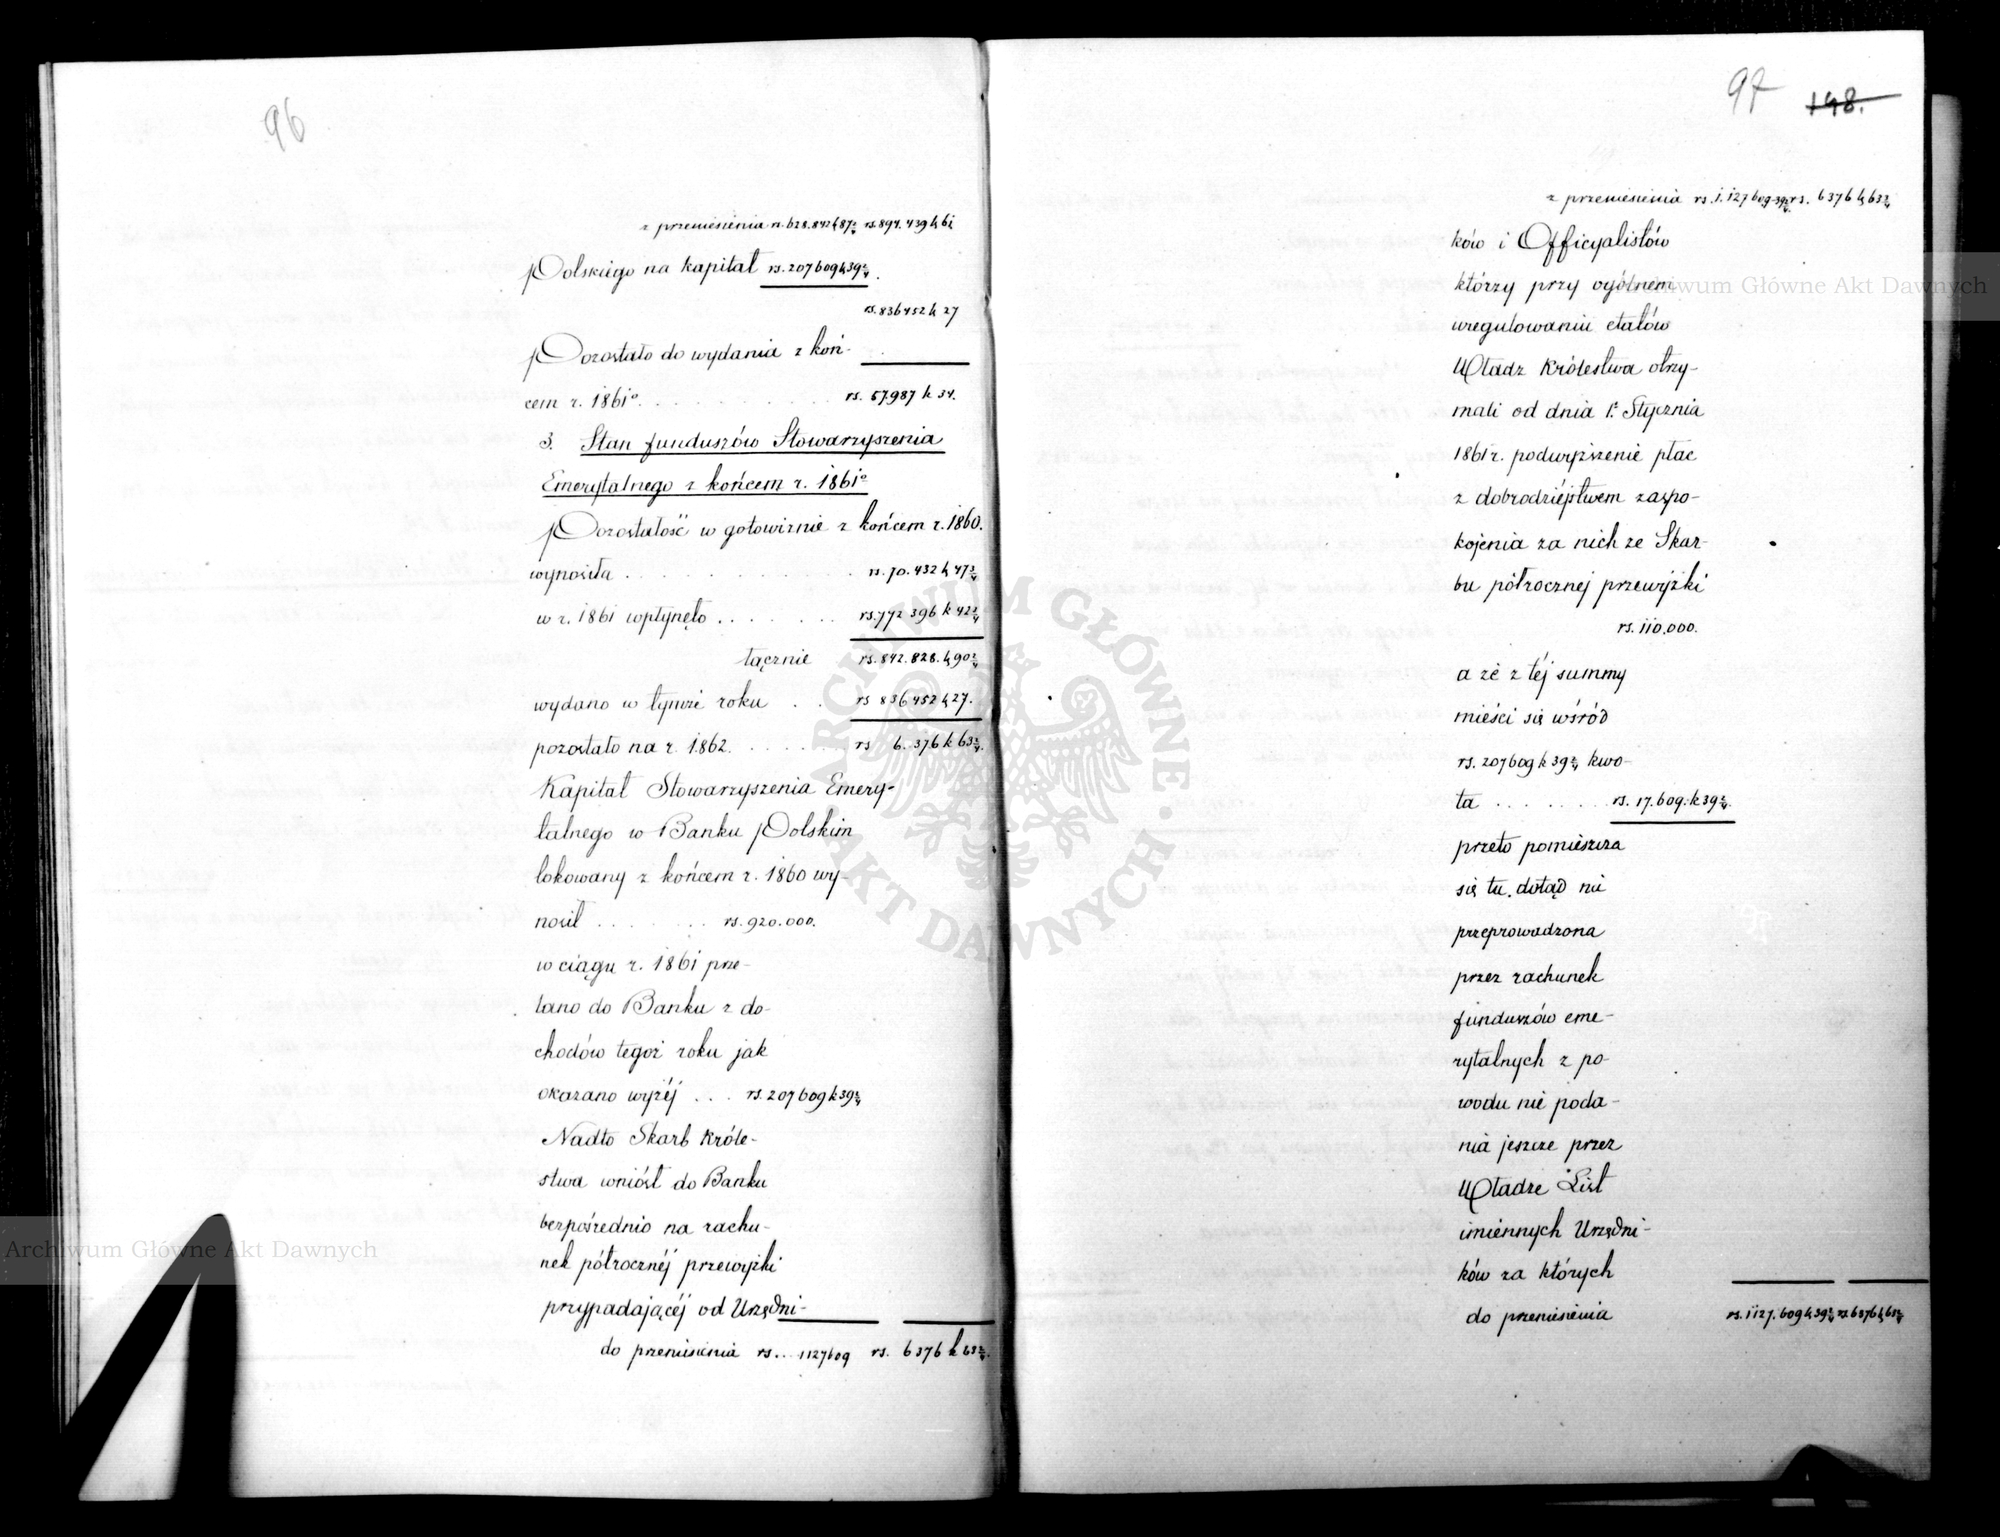 96
z przeniesienia rs. 628.842 k 87 2/4 rs. 894.439 k 61
Polskiego na kapitał rs. 207609 k 39 2/4.
rs. 836452 k 27
Pozostało do wydania z koń-
cem r. 1861o . . . . . . . . . . rs. 57.987 k 34.
3. Stan funduszów Stowarzyszenia
Emerytalnego z końcem r. 1861o
Pozostałość w gotowiźnie z końcem r. 1860.
wynosiła . . . . . . . . . . rs. 70.432 k 47 3/4
w r. 1861 wpłynęło . . . . . . rs. 772 396 k 42 3/4
łącznie rs. 842.828. k 90 2/4
wydano w tymże roku . . rs 836452 k 27.
pozostało na r. 1862. . . . . . . rs 6.376 k 63 2/4.
Kapitał Stowarzyszenia Emery-
talnego w Banku Polskim
lokowany z końcem r. 1860 wy-
nosił . . . . . . . rs. 920.000.
w ciągu r. 1861 prze-
lano do Banku z do-
chodów tegoż roku jak
okazano wyżéj . . . rs. 207609 k 39 2/4
Nadto Skarb Króle-
stwa wniósł do Banku
bezpośrednio na rachu-
nek półrocznéj przewyżki
przypadającéj od Urzędni-
do przeniesienia rs... 1127609 rs. 6376 k 63 2/4.
97 148.
z przeniesienia rs. 1.127609 39 2/4 rs. 6376 k 63 2/4
ków i Officyalistów
którzy przy ogólnem
uregulowaniu etatów
Władz Królestwa otrzy-
mali od dnia 1o Stycznia
1861 r. podwyższenie płac
z dobrodziéjstwem zaspo-
kojenia za nich ze Skar-
bu półrocznej przewyżki
rs. 110.000.
a że z téj summy
mieści się wśród
rs. 207609 k 39 2/4 kwo-
ta . . . . . . . rs. 17.609. k 39 2/4.
przeto pomieszcza
się tu, dotąd nie
przeprowadzona
przez rachunek
funduszów eme-
rytalnych z po-
wodu nie poda-
nia jeszcze przez
Władze List
imiennych Urzędni-
ków za których
do przeniesienia rs. 1127.609 k 39 2/4 rs 6376 k 63 2/4
Archiwum Główne Akt Dawnych
Archiwum Główne Akt Dawnych
ARCHIWUM GŁÓWNE • AKT DAWNYCH •